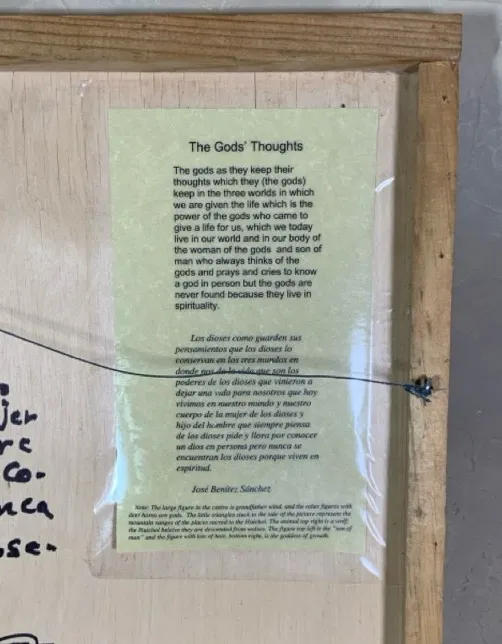 The Gods' Thoughts
The gods as they keep their
thoughts which they (the gods)
keep in the three worlds in which
we are given the life which is the
power of the gods who came to
give a life for us, which we today
live in our world and in our body of
the woman of the gods and son of
man who always thinks of the
gods and prays and cries to know
a god in person but the gods are
never found because they live in
spirituality.
Los dioses como guarden sus
pensamientos que los dioses lo
conservan en los tres mundos en
donde nos da la vida que son los
poderes de los dioses que vinieron a
dejar una vida para nosotros que hoy
vivimos en nuestro mundo y nuestro
cuerpo de la mujer de los dioses y
hijo del hombre que siempre piensa
de los dioses pide y llora por conocer
un dios en persona pero nunca se
encuentran los dioses porque viven en
espiritud.
José Benítez Sánchez
Note: The large figure in the centre is grandfather wind, and the other figures with
deer horns are gods. The little triangles stuck to the side of the picture represent the
mountain ranges of the places sacred to the Huichol. The animal top right is a wolf;
the Huichol believe they are descended from wolves. The figure top left is the "son of
man" and the figure with lots of hair, bottom right, is the goddess of growth.
jer
re
co-
nca
se-